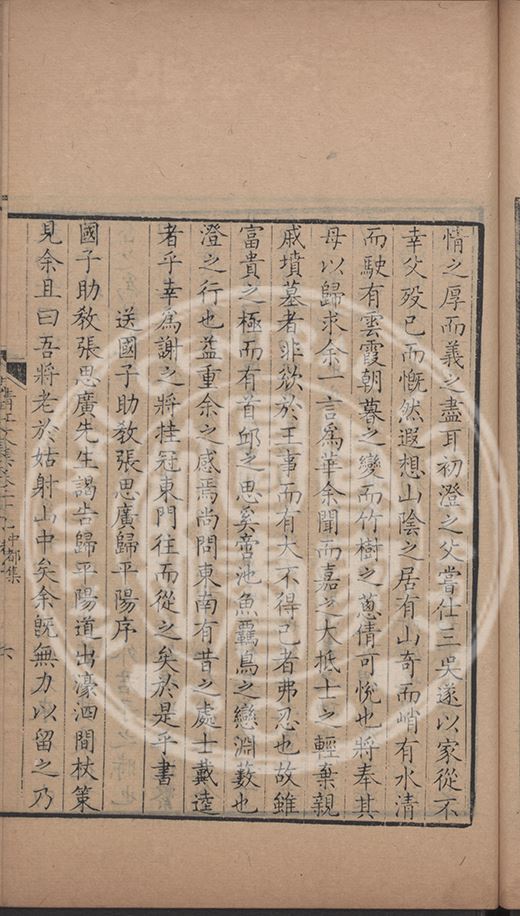 情之厚而義之盡耳初澄之父嘗仕三吳遂以家從不
幸父歿已而慨然遐想山陰之居有山奇而峭有水清
而駛有雲霞朝暮之變而竹樹之蔥倩可悅也將奉其
母以歸求余一言爲華余聞而嘉之大抵士之輕棄親
戚墳墓者非欲於王事而有大不得已者弗忍也故雖
富貴之極而有首邱之思奚啻池魚羈鳥之戀淵藪也
澄之行也益重余之感焉尚問東南有昔之處士戴逵
者乎幸爲謝之將挂冠東門往而從之矣於是乎書
送國子助敎張思廣歸平陽序
國子助敎張思廣先生謁告歸平陽道出濠泗間杖策
見余且曰吾將老於姑射山中矣余旣無力以留之乃
中都集